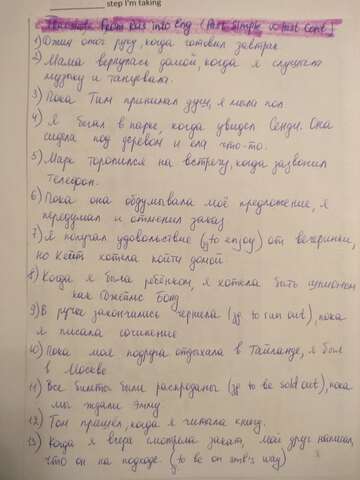 step I'm taking
Translate from Rus into Eng (Past Simple vs Past Cont.)
1) Джил ожог руку, когда готовил завтрак
2) Мама вернулась домой, когда я слушала
музыку и танцевала.
3) Пока Тим принимал душ, я мыла пол
4) Я бежал в парке, когда увидел Сенди. Она
сидела под деревом и ела что-то.
5) Марк торопился на встречу, когда зазвонил
телефон.
6) Пока она обдумывала моё предложение, я
передумал и отменил заказ
7) Я получал удовольствие (to enjoy) от вечеринки,
но Кейт хотела пойти домой.
8) Когда я была ребёнком, я хотела быть шпионом
как Джеймс Бонд
9) В ручке закончились чернила (to run out), пока
я писала сочинение
10) Пока моя подруга отдыхала в Тайланде, я был
в Москве
11) Все билеты были распроданы (to be sold out), пока
мы ждали Эмму
12) Том пришёл, когда я читала книгу.
13) Когда я вчера смотрела закат, мой друг написал,
что он на подходе. (to be on smb's way)